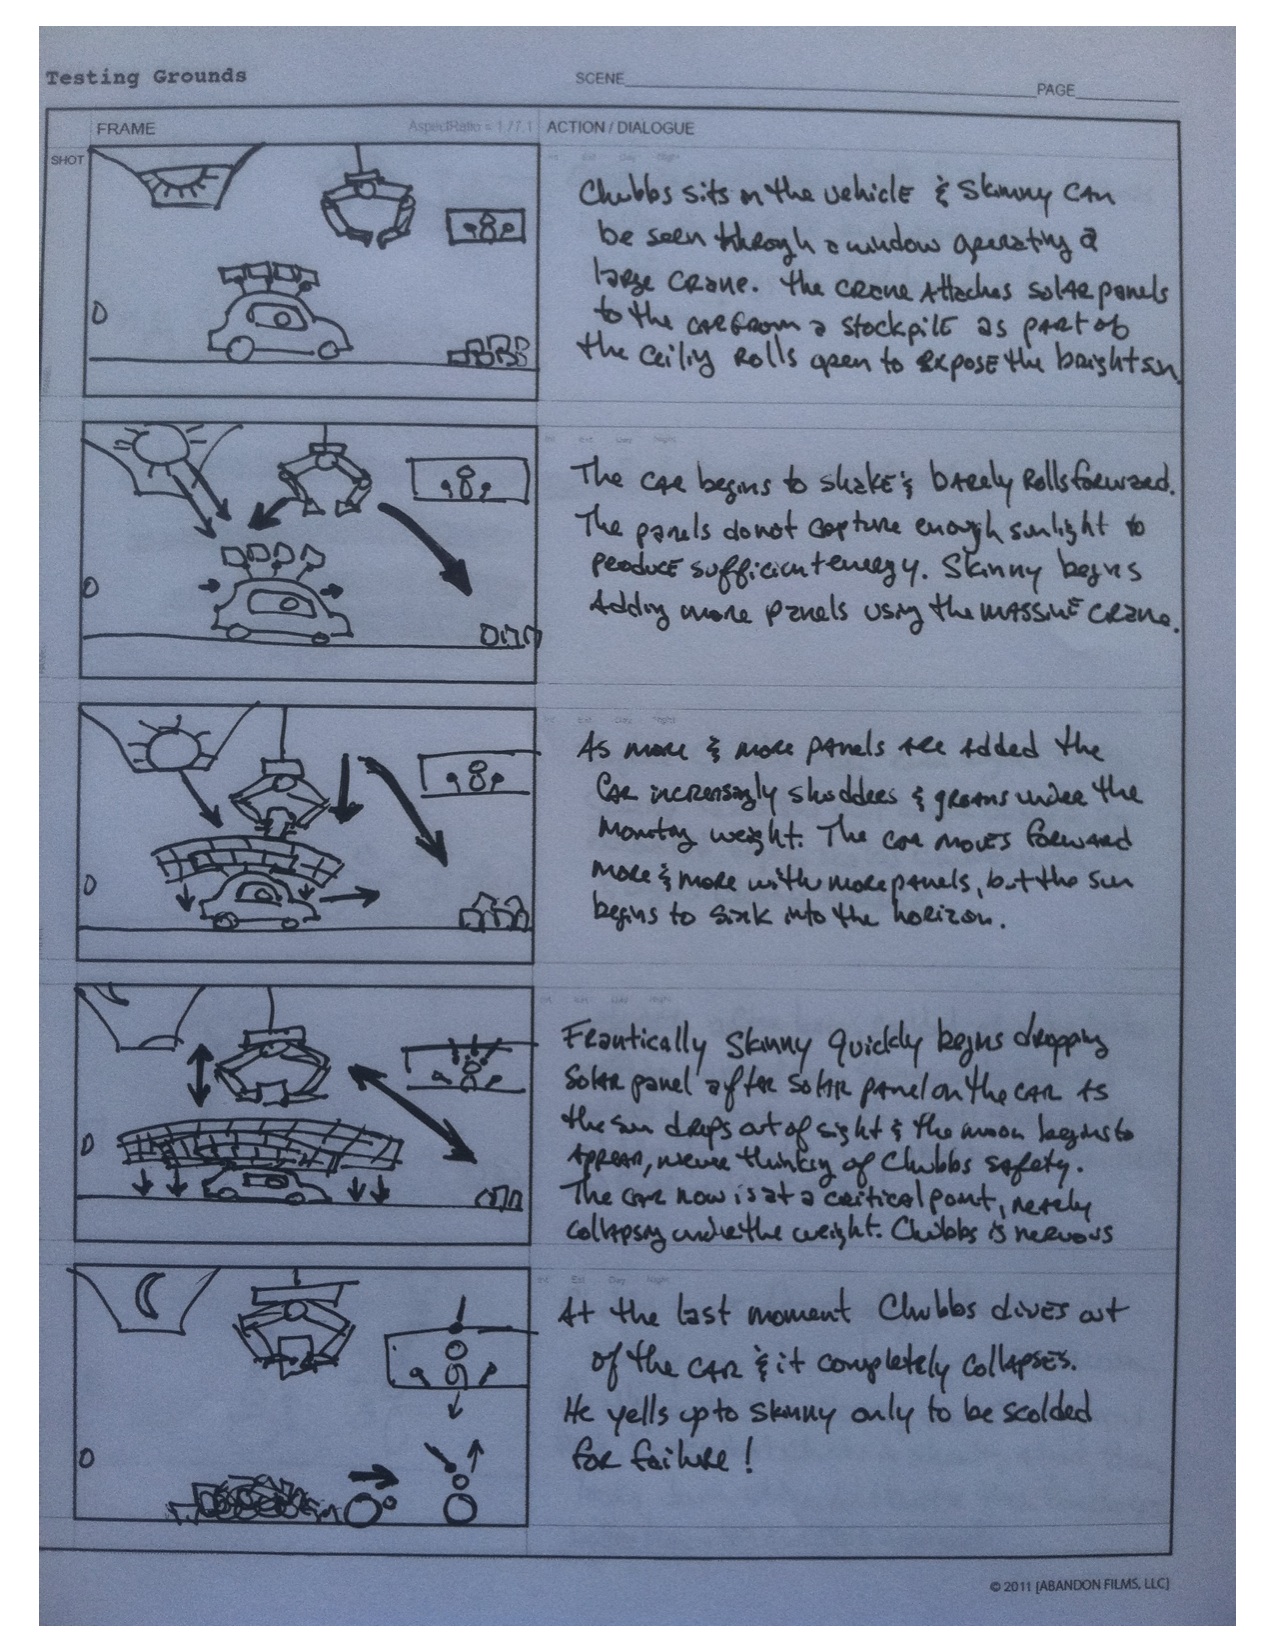 Testing Grounds
SCENE
PAGE
FRAME
AspectRatio = 1 / 7.1
ACTION / DIALOGUE
SHOT
Int Ext Day Night
Chubbs sits in the vehicle & Skinny can
be seen through a window operating a
large crane. The crane attaches solar panels
to the car from a stockpile as part of
the ceiling rolls open to expose the bright sun.
Int Ext Day Night
The car begins to shake & barely rolls forward.
The panels do not capture enough sunlight to
produce sufficient energy. Skinny begins
adding more panels using the massive crane.
Int Ext Day Night
As more & more panels are added the
car increasingly shudders & groans under the
mounting weight. The car moves forward
more & more with more panels, but the sun
begins to sink into the horizon.
Int Ext Day Night
Frantically Skinny quickly begins dropping
solar panel after solar panel on the car as
the sun drops out of sight & the moon begins to
appear, never thinking of Chubbs safety.
The car now is at a critical point, nearly
collapsing under the weight. Chubbs is nervous
Int Ext Day Night
At the last moment Chubbs dives out
of the car & it completely collapses.
He yells up to Skinny only to be scolded
for failure!
© 2011 [ABANDON FILMS, LLC]